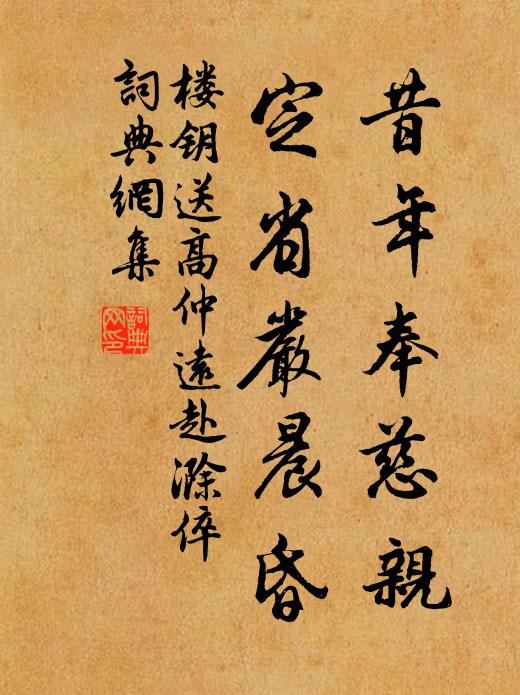 昔年奉慈親
定省嚴晨昏
楼钥送高仲遠赴滁倅
詞典網集
詞典網印